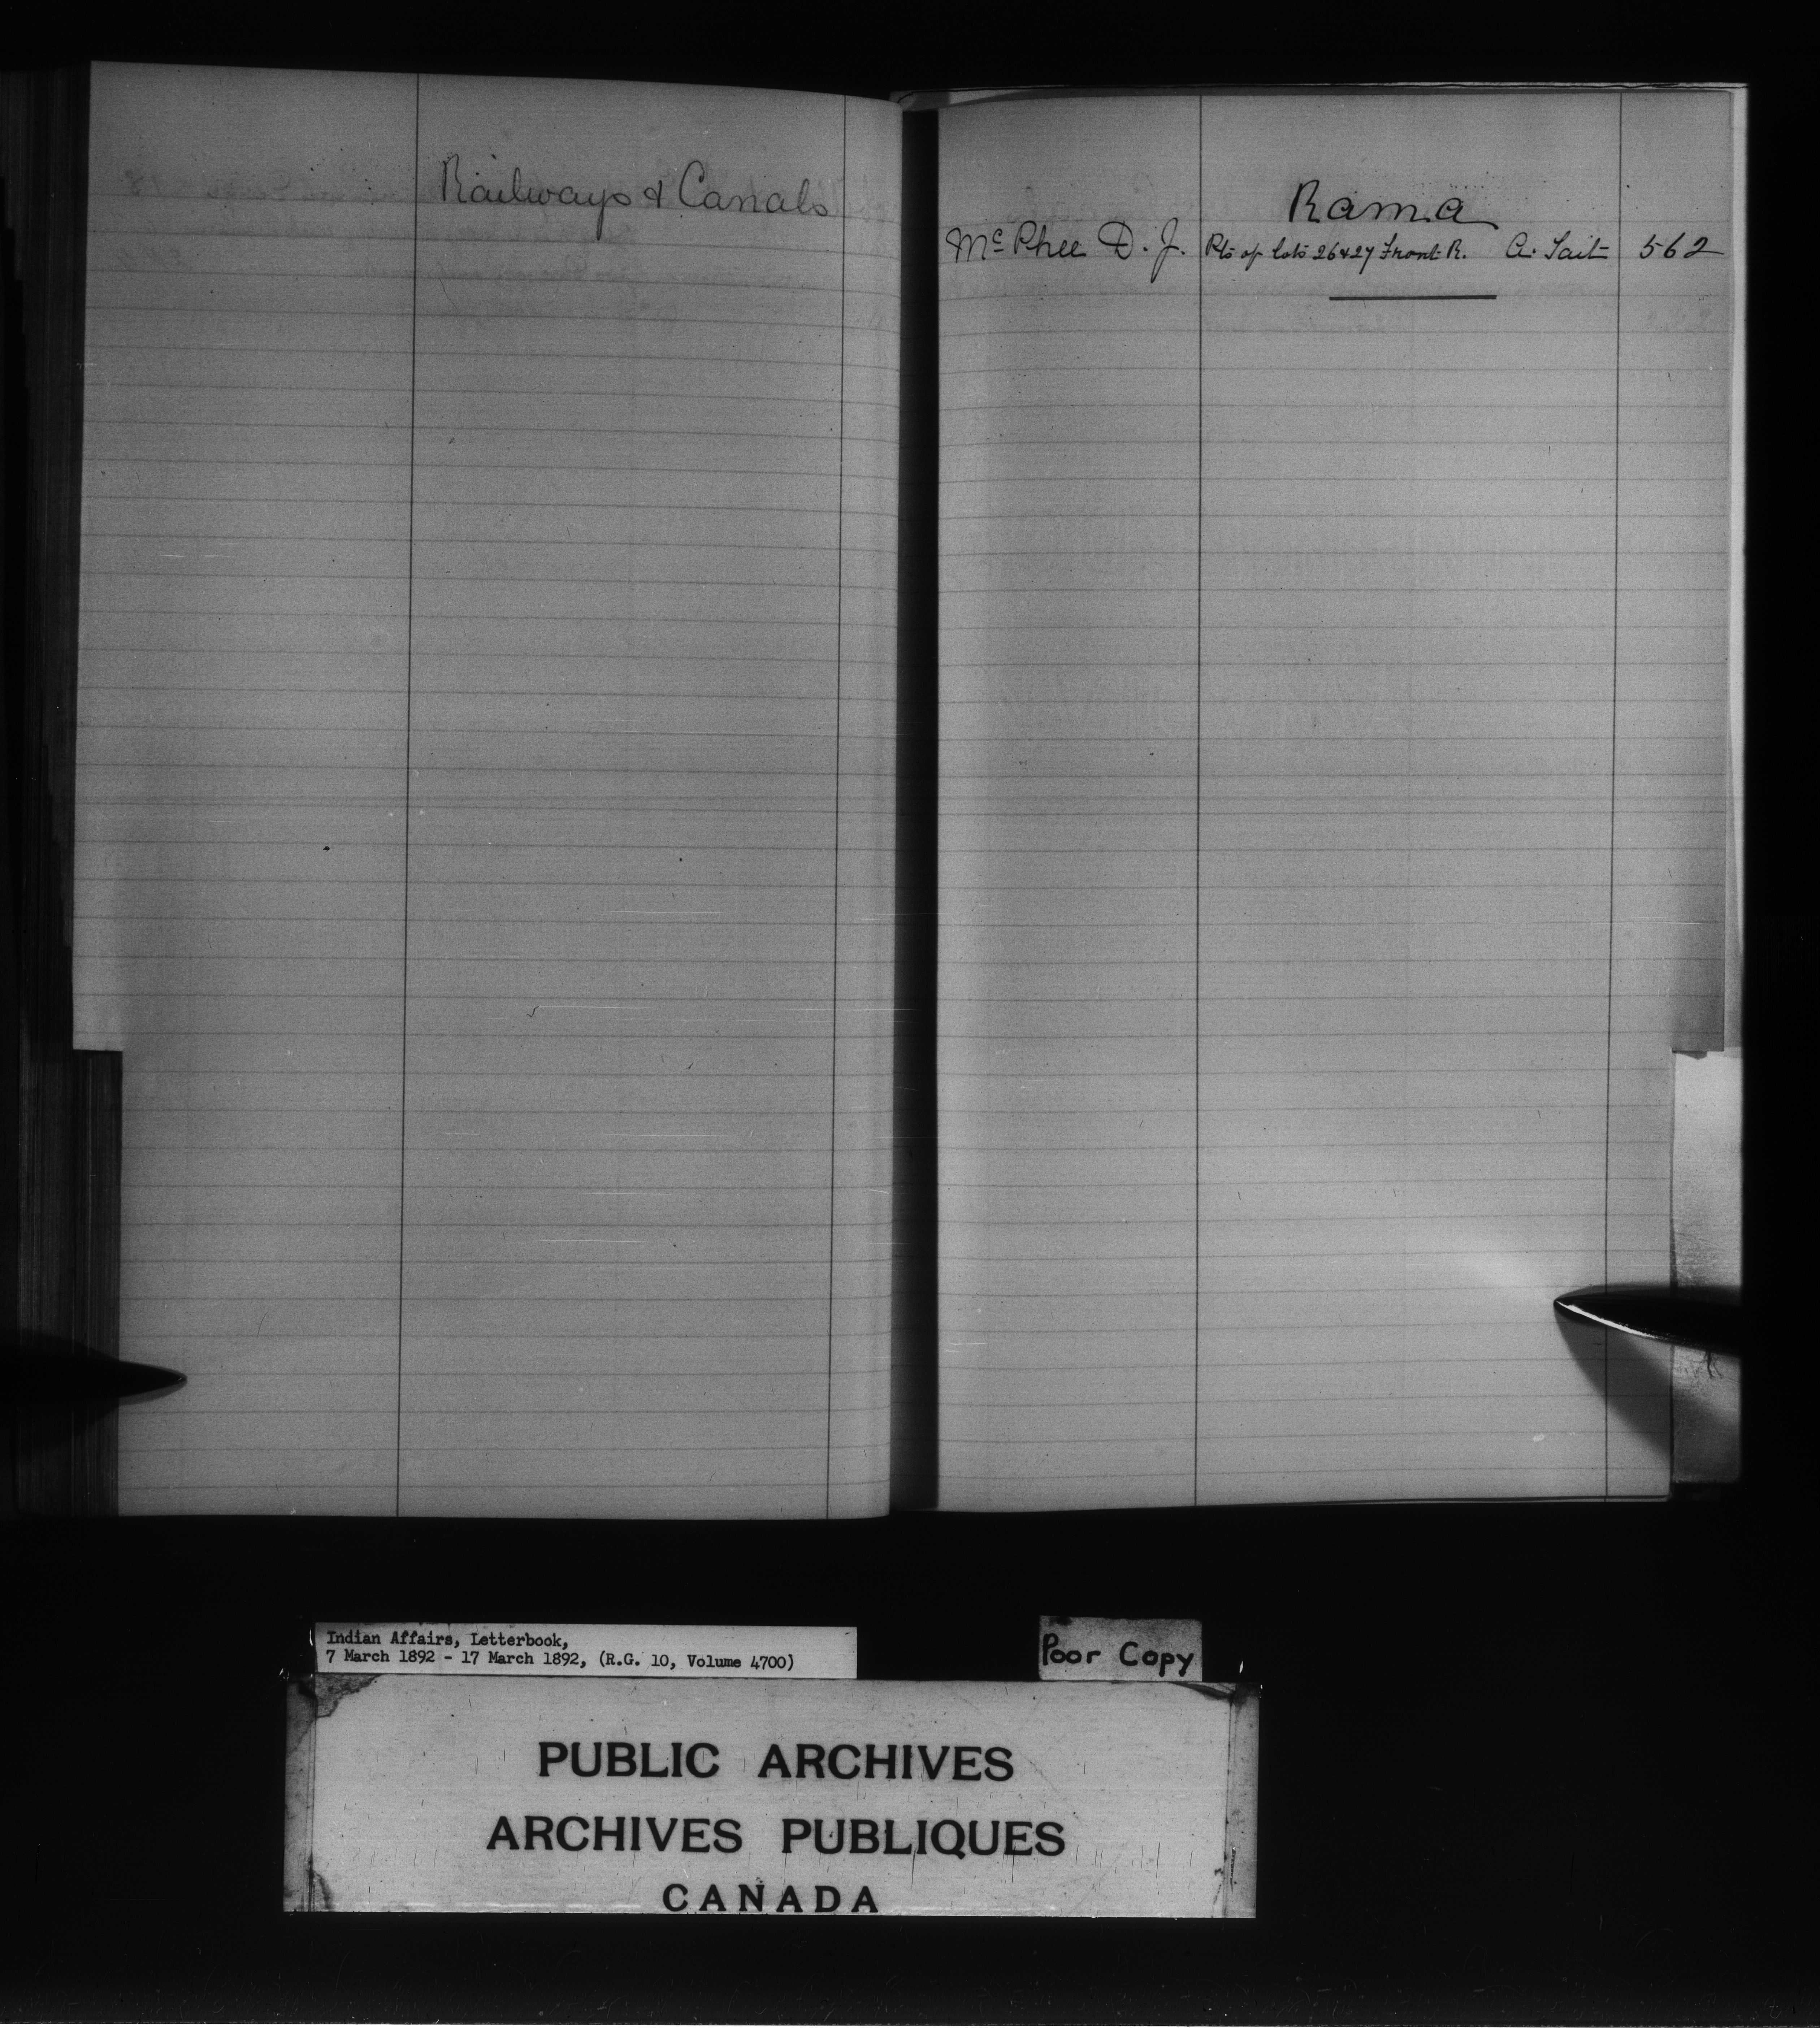 Railways & Canals
Rama
McPhee D. J. Pts of lots 26 & 27 Front R. A. Tait 562
Indian Affairs, Letterbook,
7 March 1892 - 17 March 1892, (R.G. 10, Volume 4700)
Poor Copy
PUBLIC ARCHIVES
ARCHIVES PUBLIQUES
CANADA